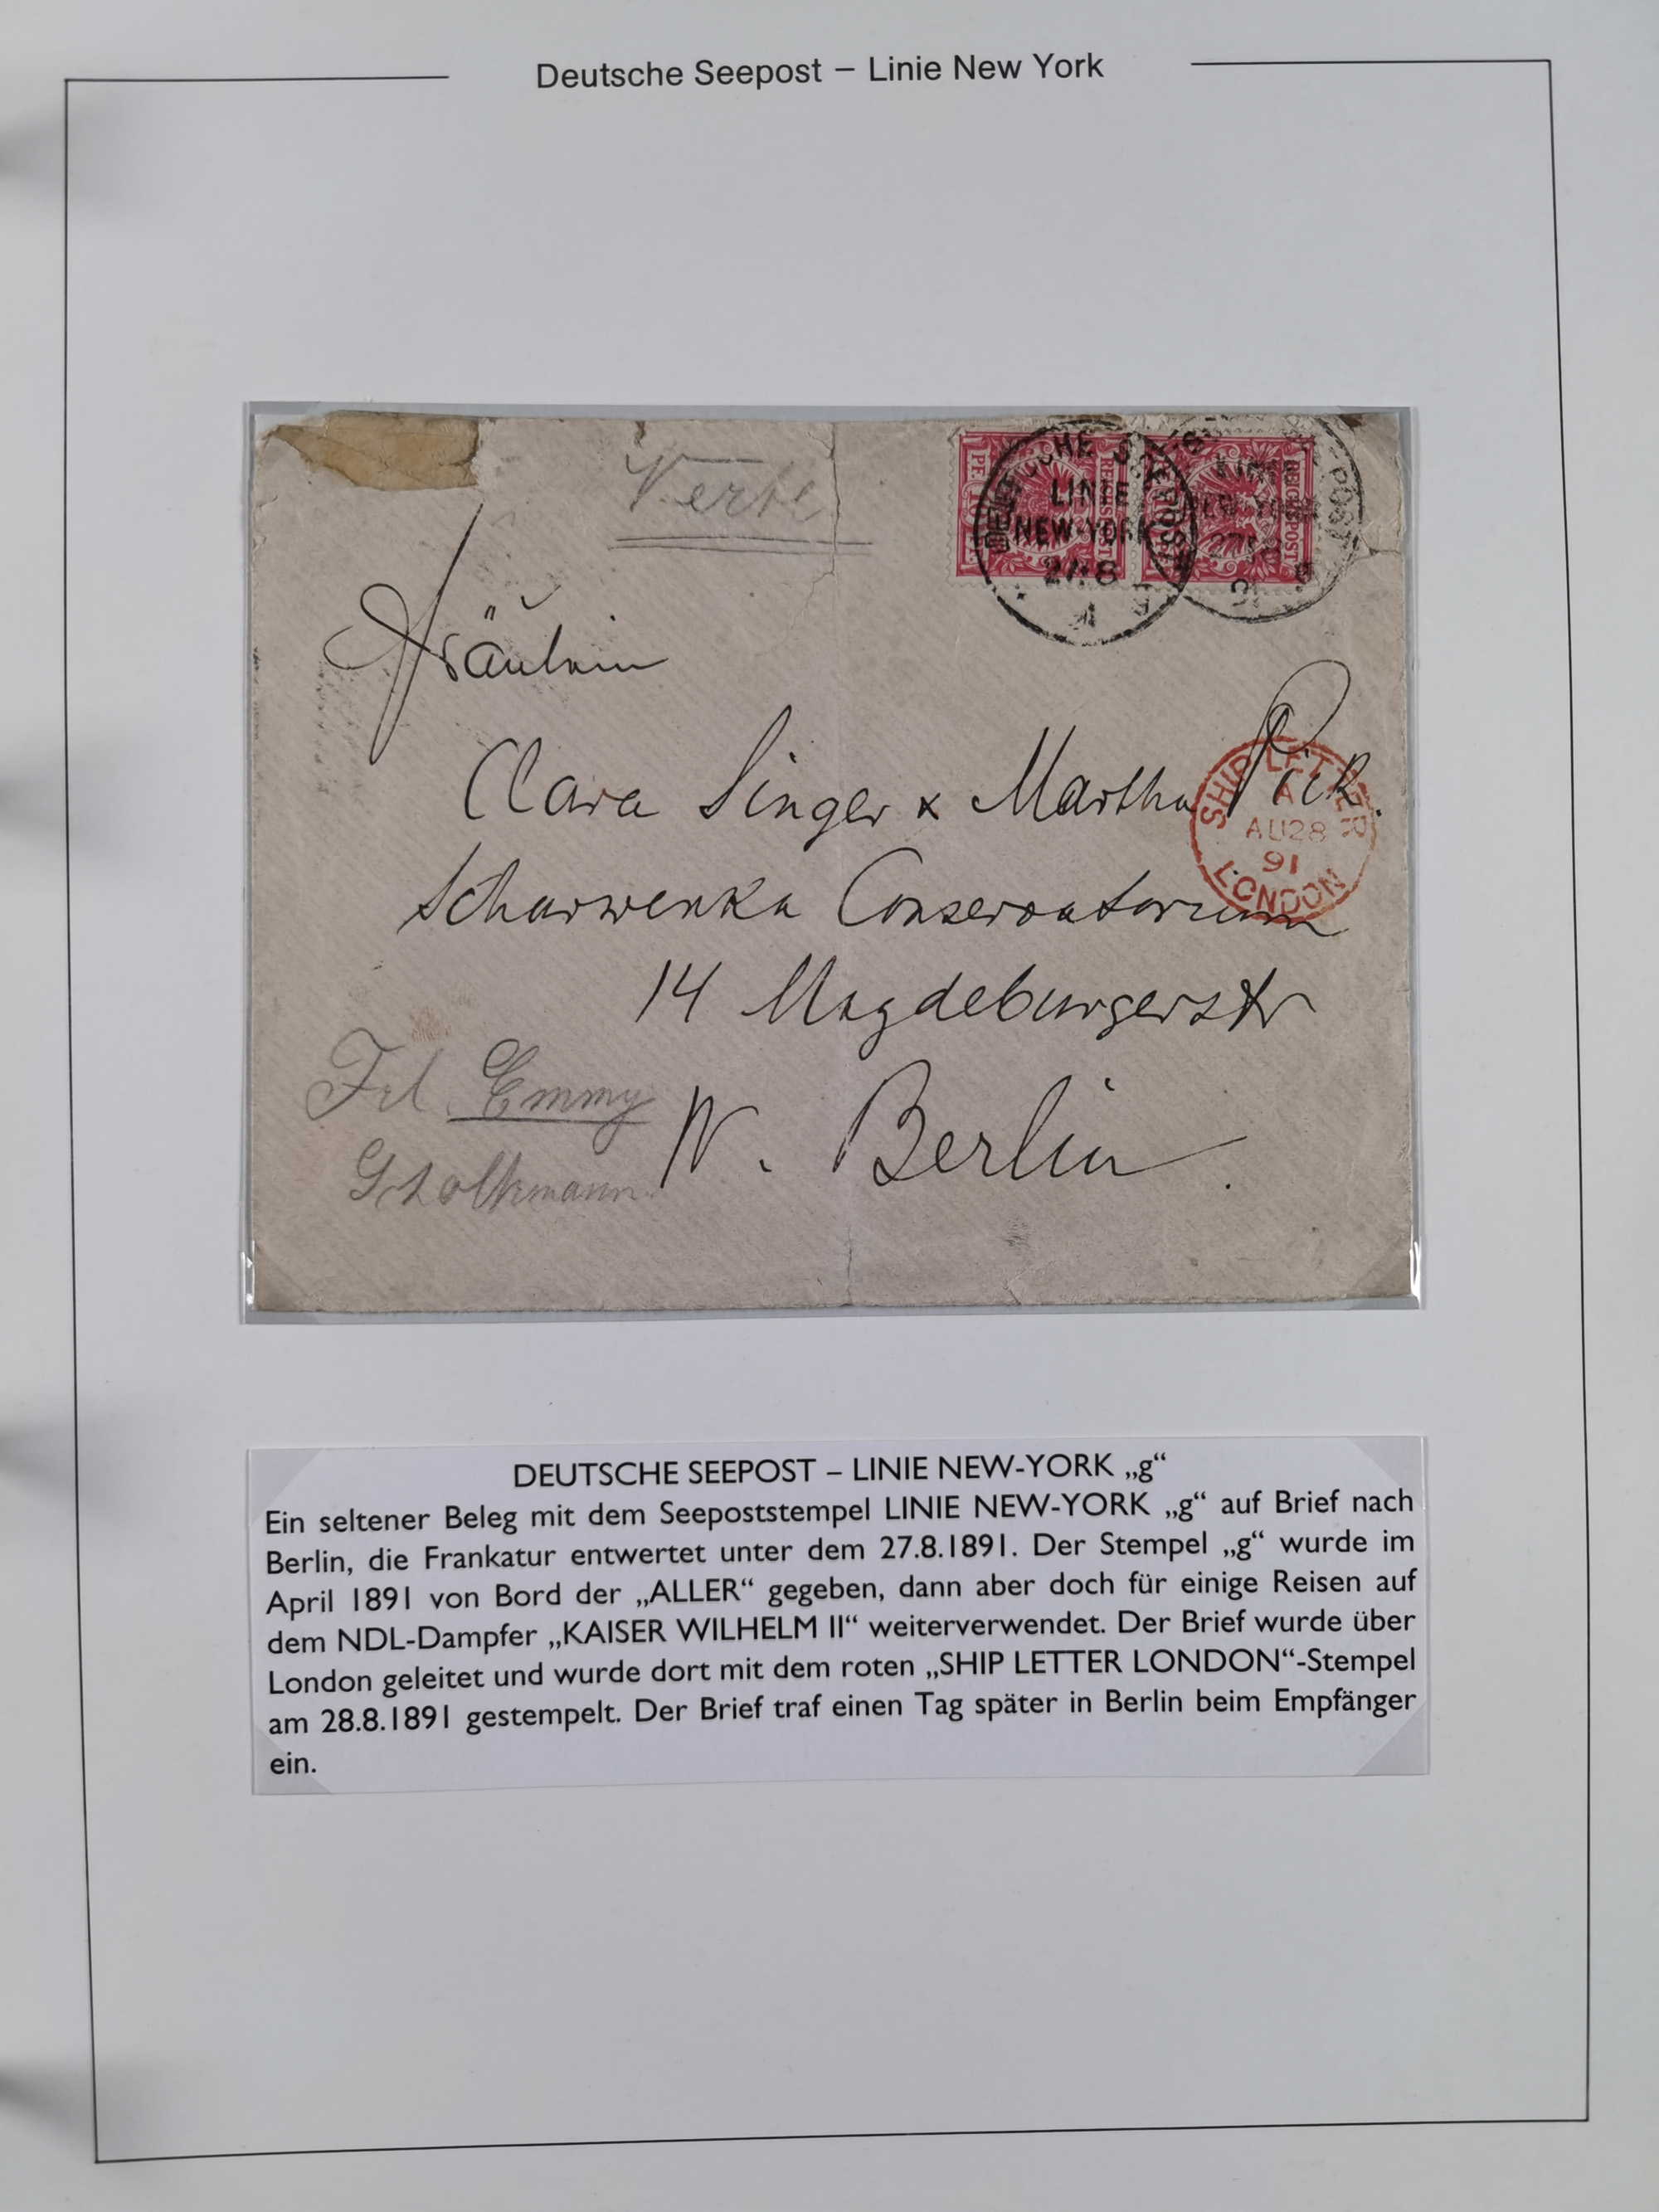 Deutsche Seepost – Linie New York
DEUTSCHE SEEPOST
LINIE
NEW-YORK
27.8
91
LINIE
27.8
91
REICHSPOST
REICHSPOST
Fräulein
Clara Singer x Martha Pick.
Scharwenka Conservatorium
14 Magdeburgerstr
W. Berlin.
SHIP LETTER
A
AU28
91
LONDON
Frl. Emmy
DEUTSCHE SEEPOST – LINIE NEW-YORK „g“
Ein seltener Beleg mit dem Seepoststempel LINIE NEW-YORK „g“ auf Brief nach
Berlin, die Frankatur entwertet unter dem 27.8.1891. Der Stempel „g“ wurde im
April 1891 von Bord der „ALLER“ gegeben, dann aber doch für einige Reisen auf
dem NDL-Dampfer „KAISER WILHELM II“ weiterverwendet. Der Brief wurde über
London geleitet und wurde dort mit dem roten „SHIP LETTER LONDON“-Stempel
am 28.8.1891 gestempelt. Der Brief traf einen Tag später in Berlin beim Empfänger
ein.